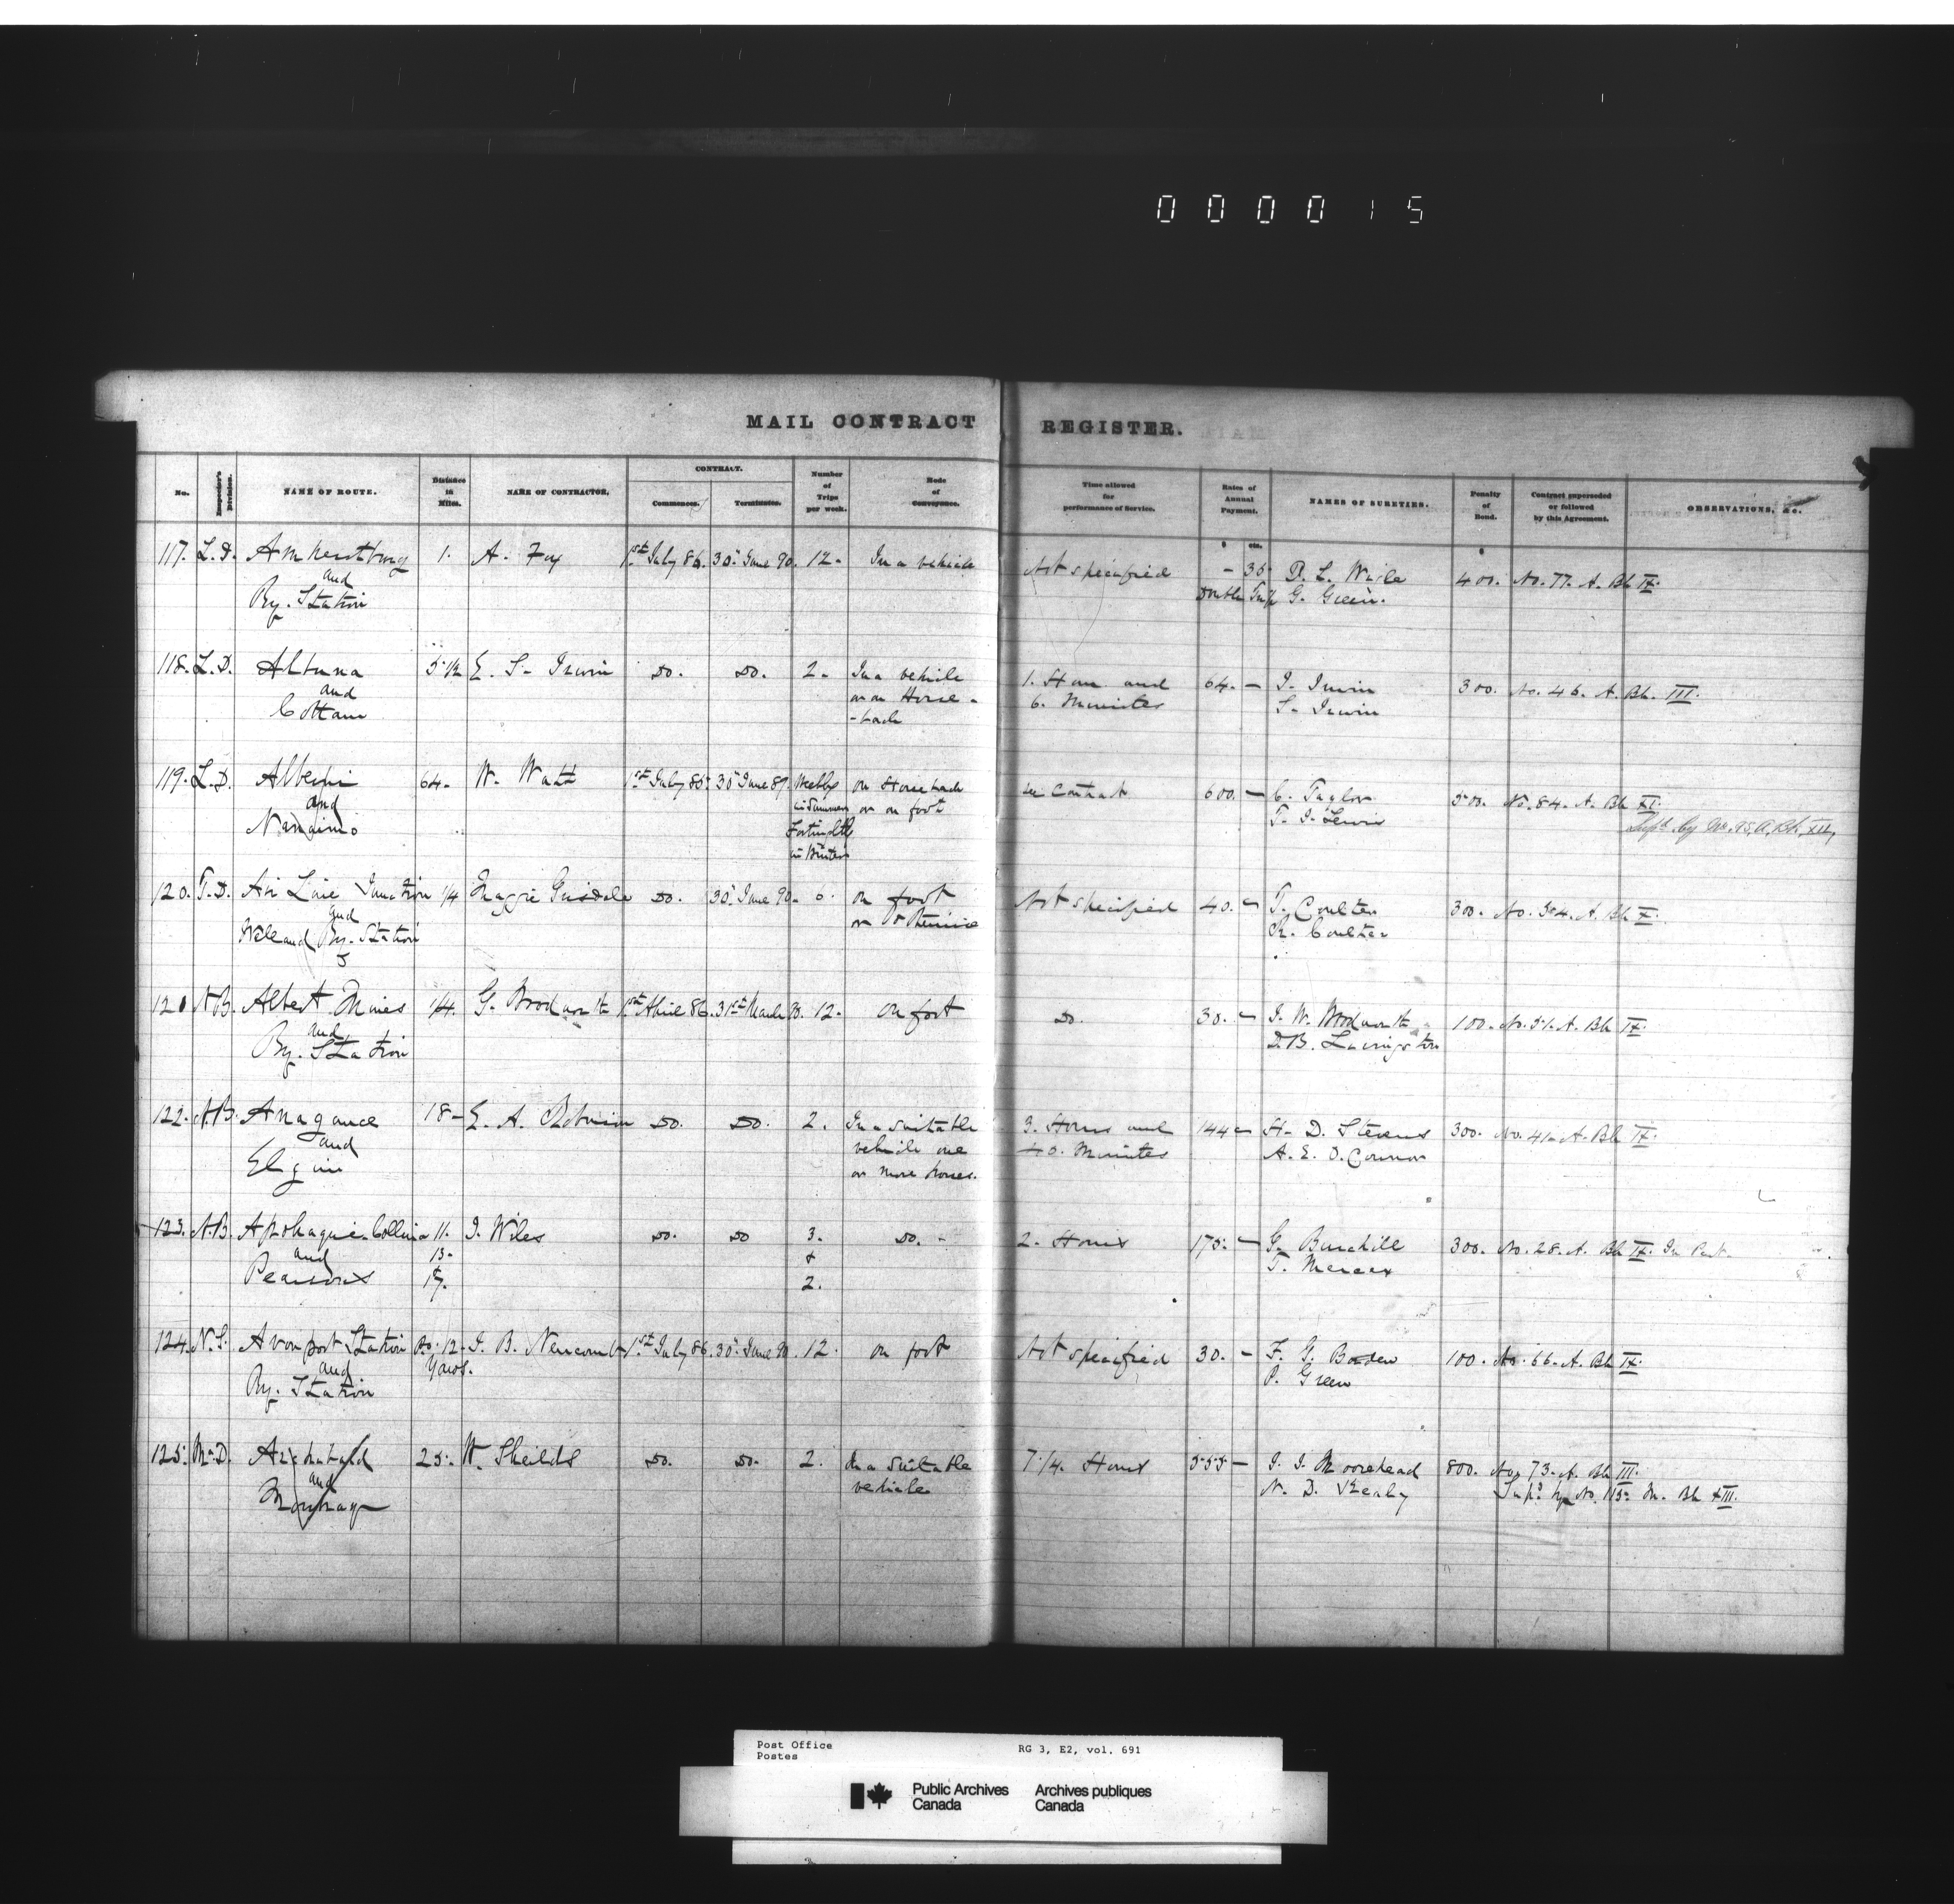 000015
MAIL CONTRACT REGISTER.
No. Inspector's Division. NAME OF ROUTE. Distance in Miles. NAME OF CONTRACTOR. CONTRACT. Commences. Terminates. Number of Trips per week. Mode of Conveyance. Time allowed for performance of Service. Rates of Annual Payment. NAMES OF SURETIES. Penalty of Bond. Contract superseded or followed by this Agreement. OBSERVATIONS, &c.
$ cts. $
117. L.D. Amherstburg 1. A. Fox 1st July 86. 30th June 90. 12. In a vehicle Not specified - 35 D. L. Wigle 400. No. 77. A. Bk IX.
and Double Trip G. Green.
Ry. Station
118. L.D. Altuna 5 1/2 E. S. Irwin Do. Do. 2. In a vehicle 1. Hour and 64. - J. Irwin 300. No. 46. A. Bk. III.
and or on Horse- 6. Minutes S. Irwin
Cottam -back
119. L.D. Alberni 64. W. Watt 1st July 85. 30th June 89. Weekly on Horseback see Contract 600. - C. Taylor 500. No. 84. A. Bk XI.
and in Summer or on foot T. J. Lewis Supd by No. 95, A, Bk. XII,
Nanaimo Fortnightly
in Winter
120. T.D. Air Line Junction 1/4 Maggie Do. 30th June 90. 6. on foot Not specified 40. - T. Coulter 300. No. 304. A. Bk X.
and or Otherwise R. Coulter
Welland Ry. Station
121 N.B. Albert Mines 1/4. G. Woodworth 1st April 86. 31st March 90. 12. on foot Do. 30. - J. W. Woodworth 100. No. 51. A. Bk IX.
and D. B. Livingston
Ry. Station
122. N.B. Anagance 18 - E. A. Robinson Do. Do. 2. In a suitable 3. Hours and 144 - H. D. Stevens 300. No. 41. A. Bk IX.
and vehicle one 40. Minutes A. E. O. Connor
Elgin or more horses.
123. N.B. Apohaqui. Collina 11. J. Wiles Do. Do 3. Do. - 2. Hours 175. - G. Burchill 300. No. 28. A. Bk IX. In Part.
and 13. & T. Mercer
Pearsons 17. 2.
124. N.S. Avonport Station Ro. 12. J. B. Newcomb 1st July 86. 30th June 90. 12. on foot Not specified 30. - F. G. Borden 100. No. 66. A. Bk IX.
and Yards. P. Green
Ry. Station
125. Ma.D. Archibald 25. W. Sheilds Do. Do. 2. In a suitable 7 1/4. Hours 555 - J. J. Moorehead 800. No. 73. A. Bk III.
and vehicle N. D. Supd. by No. 115. M. Bk XIII.
Post Office RG 3, E2, vol. 691
Postes
Public Archives Archives publiques
Canada Canada